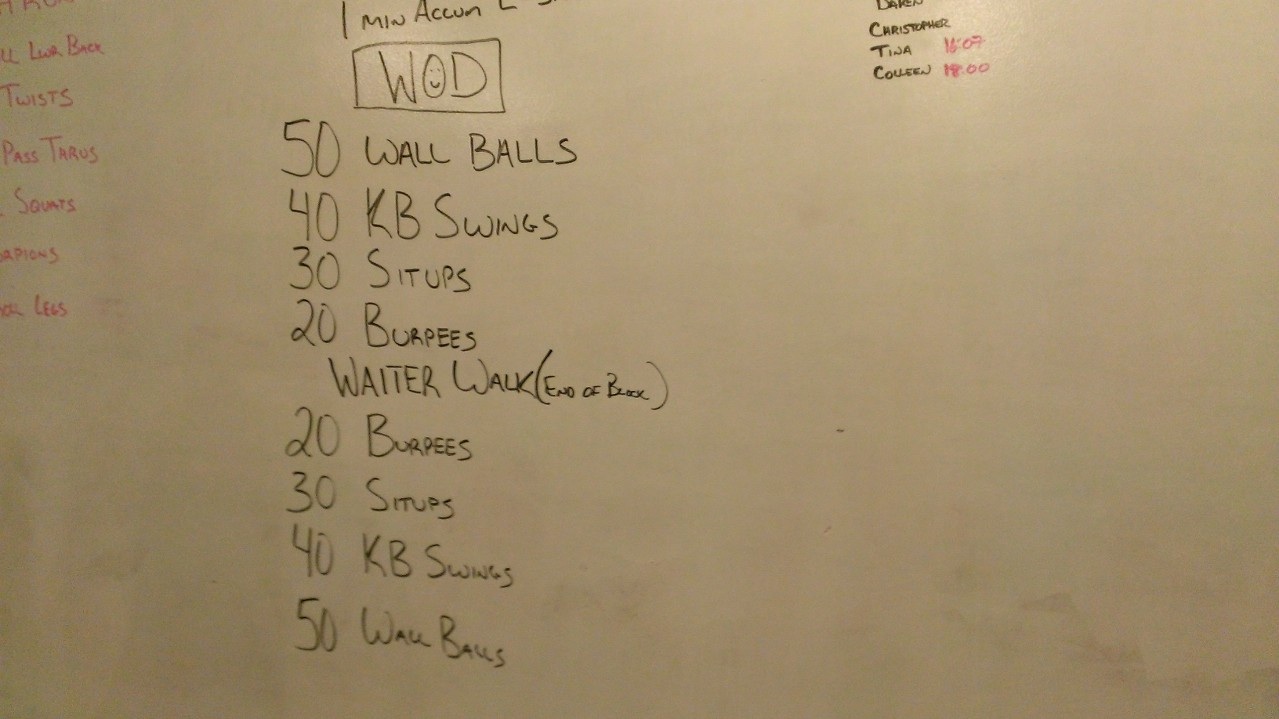 Lwr Back
Twists
Pass Thrus
Squats
Legs
1 min Accum L
WOD
50 Wall Balls
40 KB Swings
30 Situps
20 Burpees
Waiter Walk (End of Block)
20 Burpees
30 Situps
40 KB Swings
50 Wall Balls
Daren
Christopher
Tina 16:07
Colleen 18:00